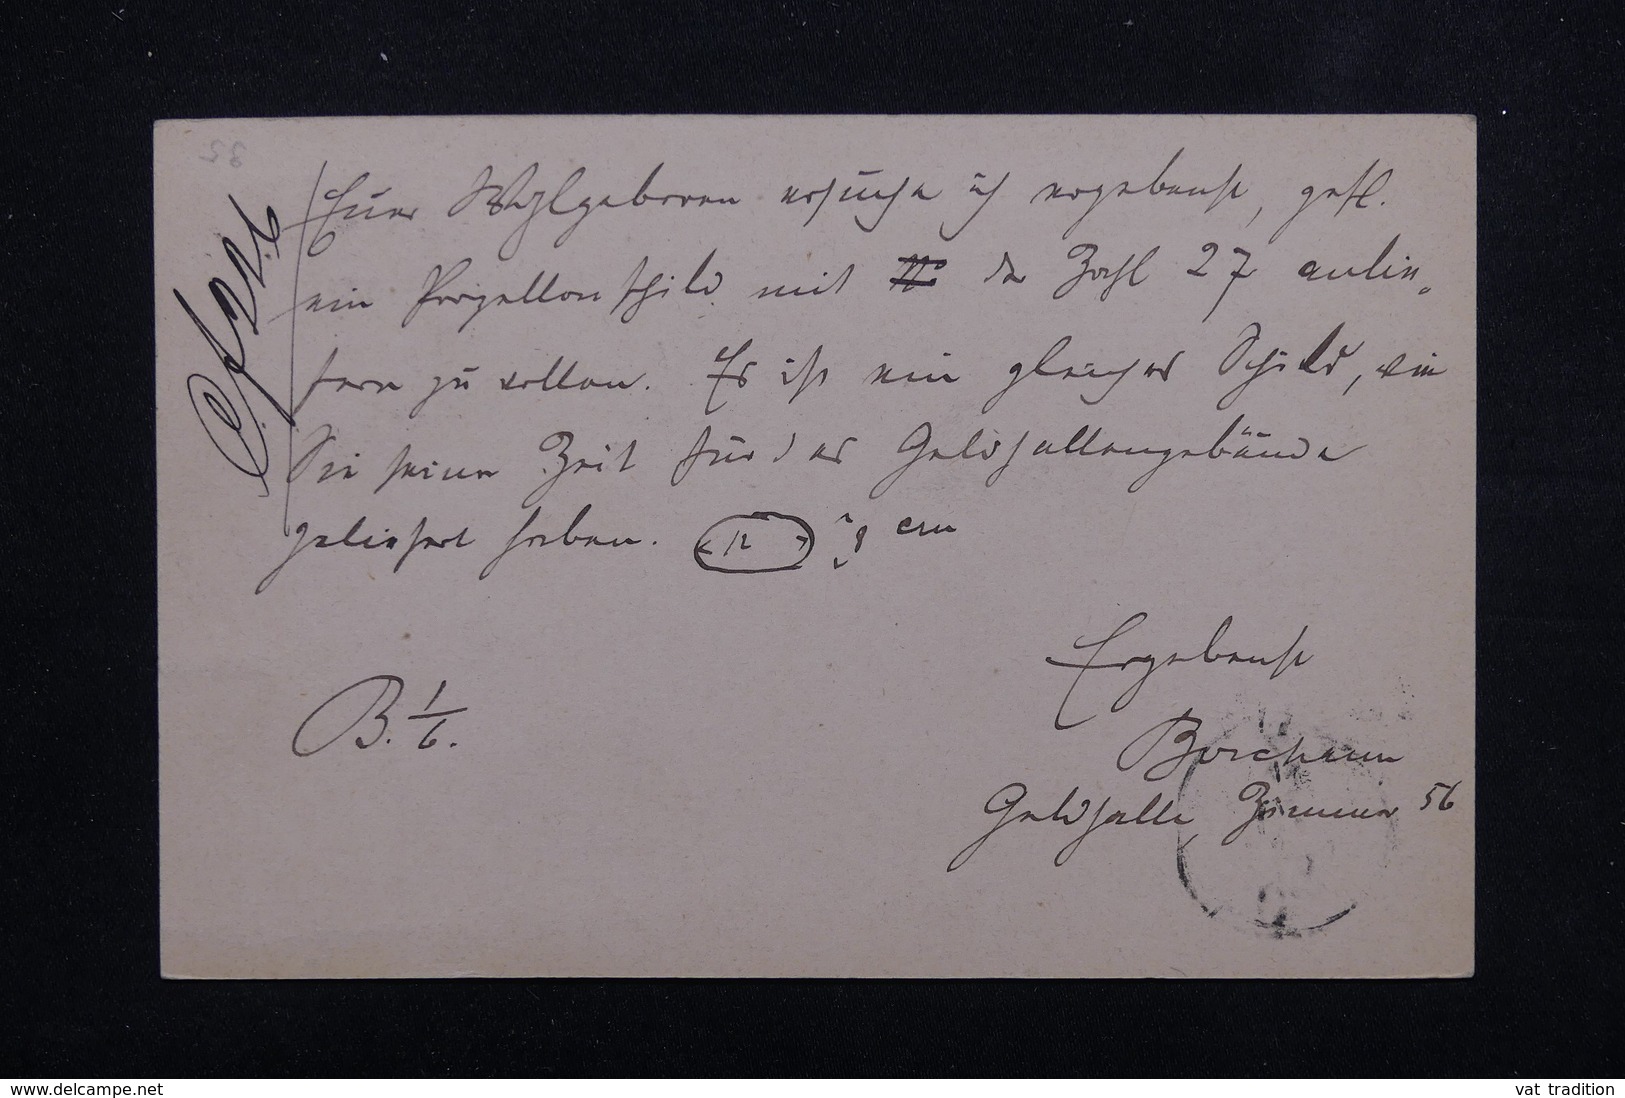 Euer Wohlgeboren ersuche ich ergebenst, gefl.
ein Porzellanschild mit No der Zahl 27 anlie„
fern zu wollen. Es ist ein gleiches Schild, wie
Sie seiner Zeit für das Geldhallengebäude
geliefert haben. 12 8 cm
Ergebenst
B. 1/6.
Geldhalle Zimmer 56
www.delcampe.net
vat tradition